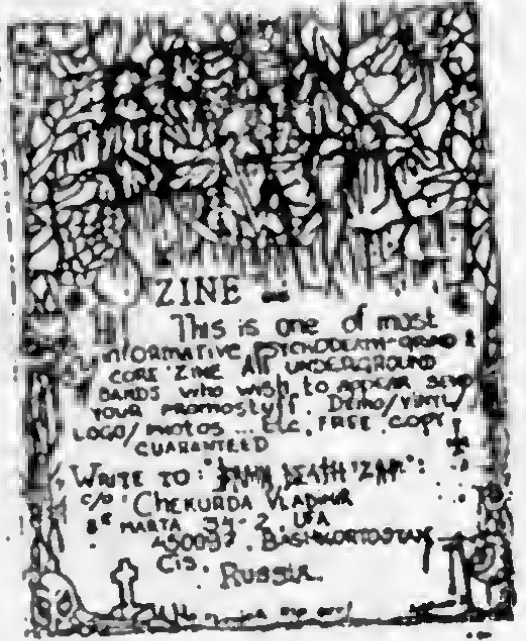 ZINE
This is one of most
informative PSYCHODEATH-GRIND &
CORE 'ZINE All UNDERGROUND
BANDS who wish to appear SEND
YOUR PROMOSTUFF DEMO/VINYL/
LOGO/PHOTOS ... Etc. FREE COPY
GUARANTEED
WRITE TO: DEATH 'ZINE":
c/o CHEKURDA VLADIMIR
8 MARTA 34-2 UFA
BASHKORTOSTAN
CIS.
RUSSIA.